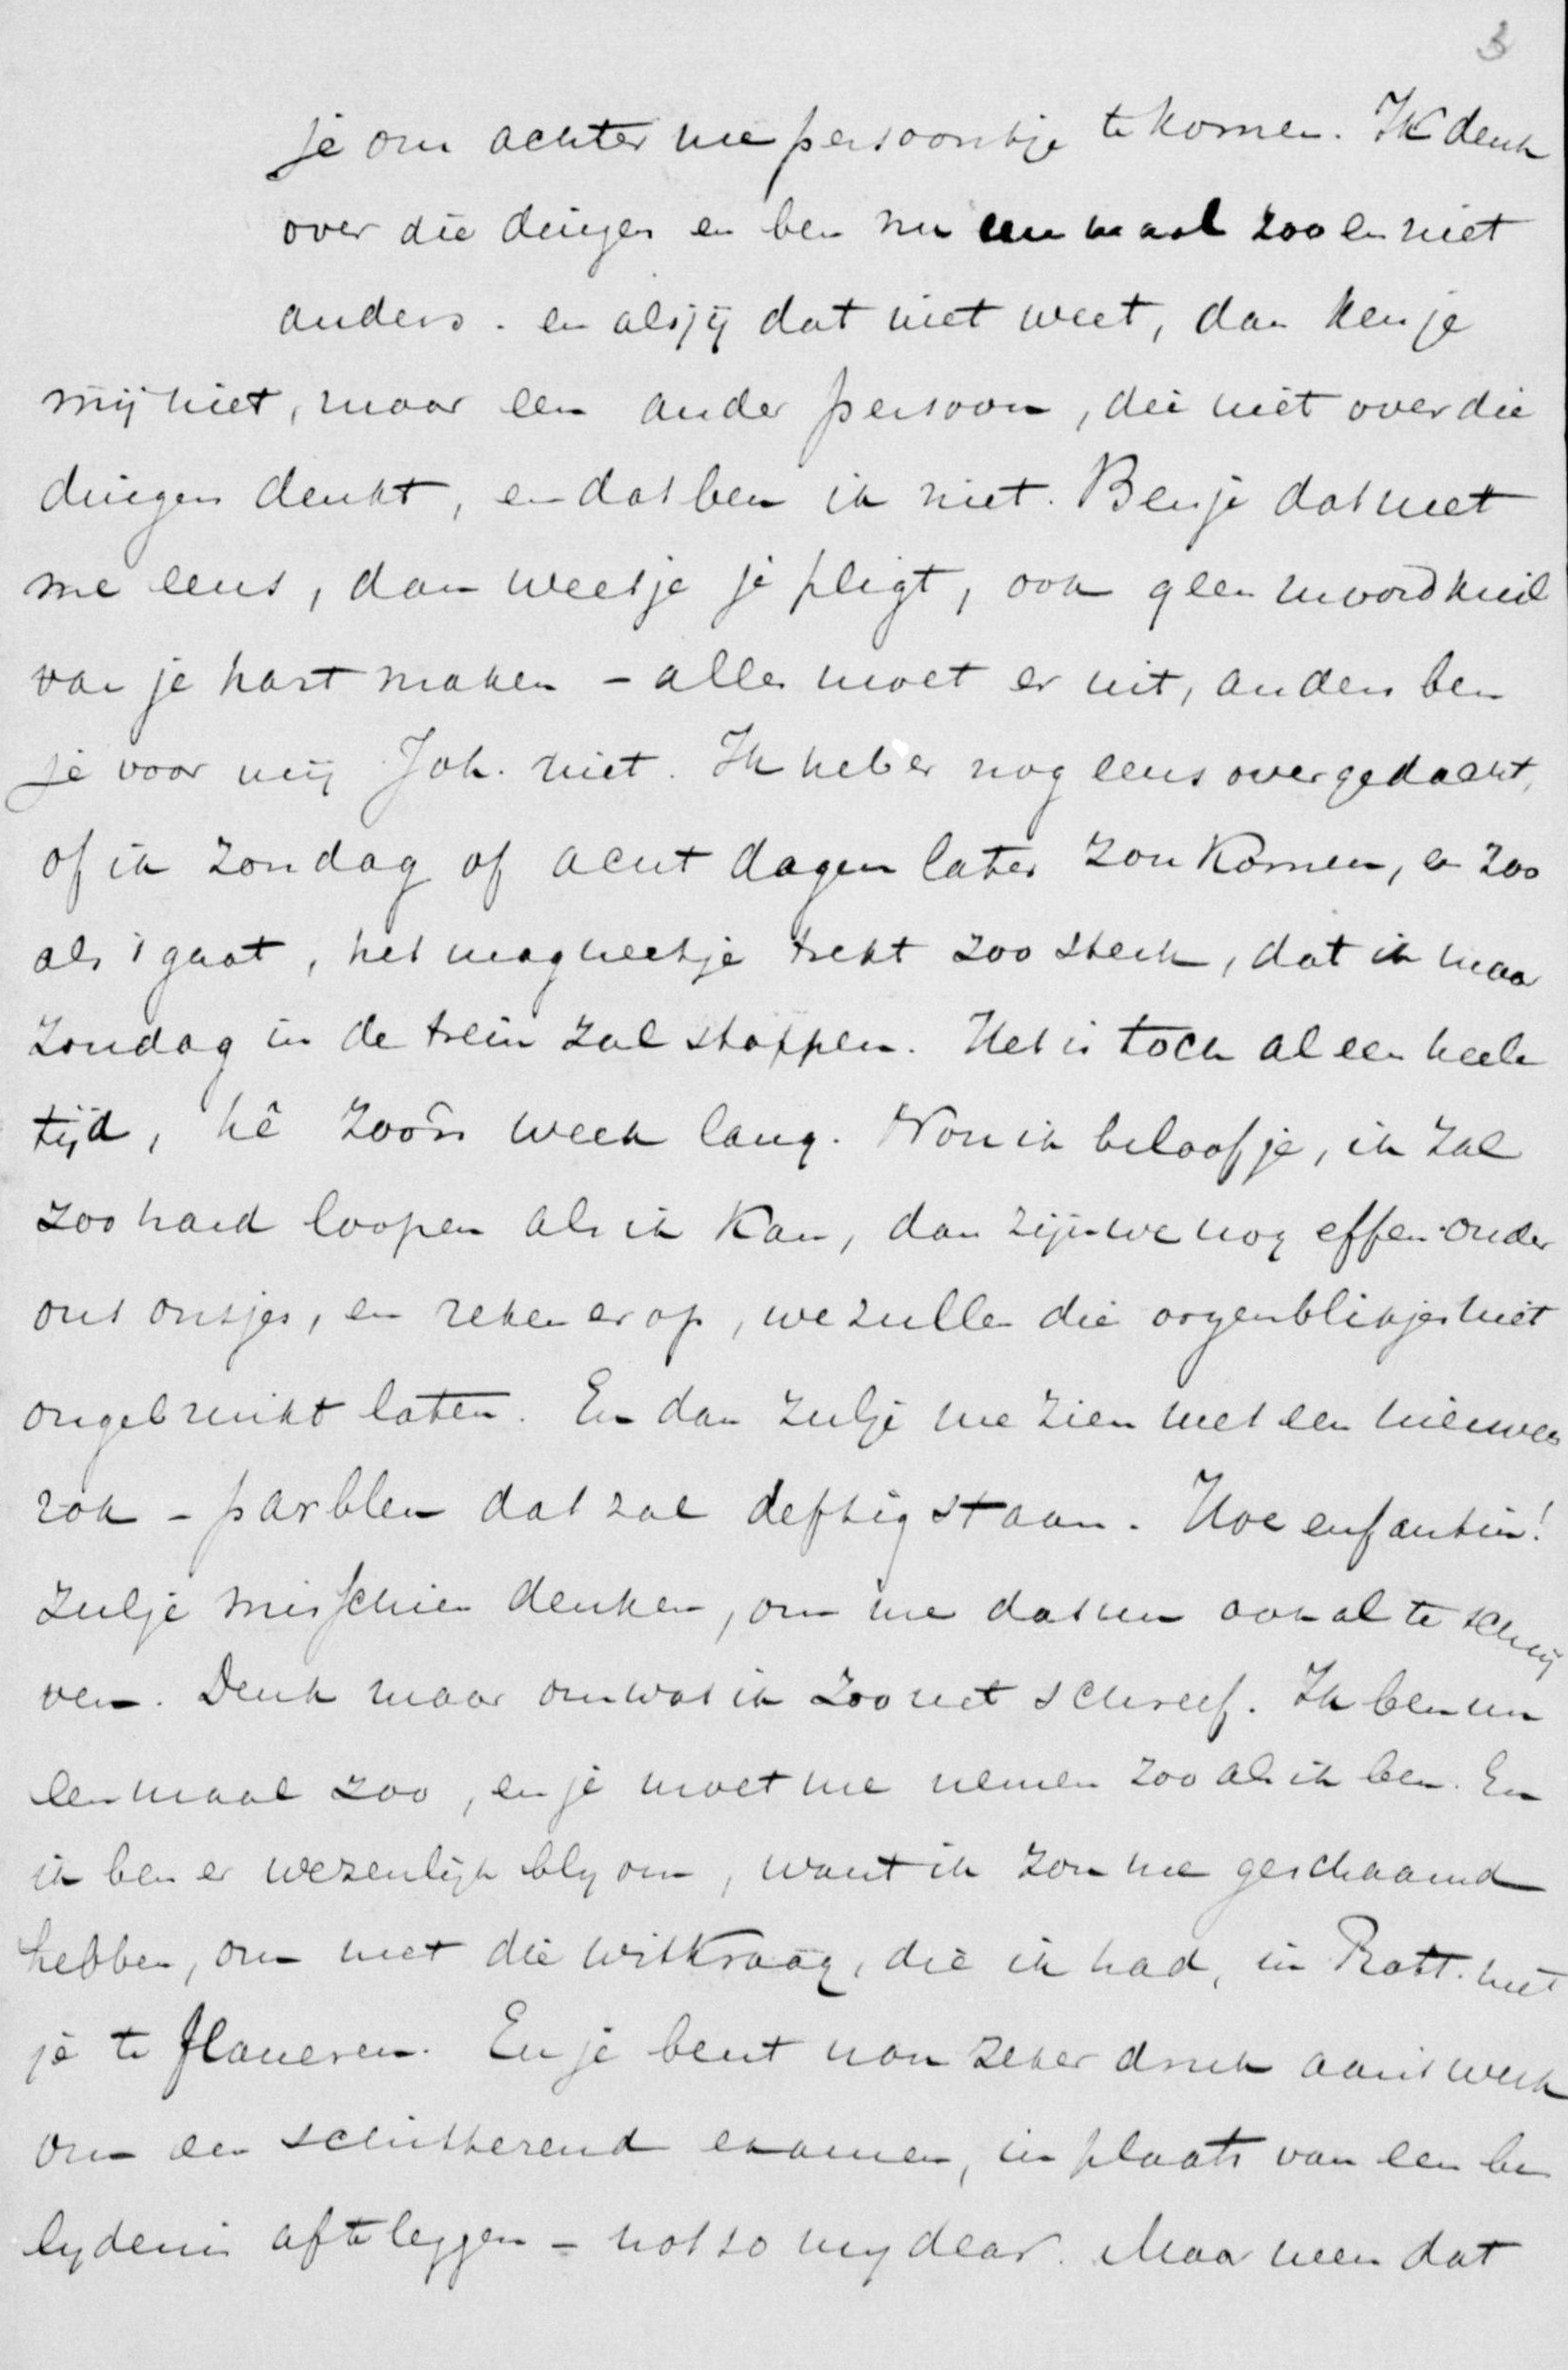 3
je om achter me persoontje te komen. Ik denk
over die dingen en ben nu eenmaal zoo en niet
anders. en als jij dat niet weet, dan ken je
mij niet, maar een ander persoon, die niet over die
dingen denkt, en dat ben ik niet. Ben je dat met
me eens, dan weet je je pligt, ook geen moordkuil
van je hart maken – alles moet er uit, anders ben
je voor mij Joh. niet. Ik heb er nog eens over gedacht,
of ik Zondag of acht dagen later zou komen, en zoo
als 't gaat, het magneetje trekt zoo sterk, dat ik maar
Zondag in de trein zal stappen. Het is toch al een heele
tijd, hê zoo'n week lang. Nou ik beloof je, ik zal
zoo hard loopen als ik kan, dan zijn we nog effen onder
ons onsjes, en reken er op, we zullen die oogenblikjes niet
ongebruikt laten. En dan zul je me zien met een nieuwen
rok – parbleu dat zal deftig staan. Hoe enfantin!
zul je misschien denken, om me dat nu ook al te schrij
ven. Denk maar om wat ik zoo net schreef. Ik ben nu
eenmaal zoo, en je moet me nemen zoo als ik ben. En
ik ben er wezenlijk bly om, want ik zou me geschaamd
hebben, om met die witkraag, die ik had, in Rott. met
je te flaneren. En je bent nou zeker druk aan 't werk
om een schitterend examen, in plaats van een be
lydenis af te leggen – not so my dear. Maar neen dat